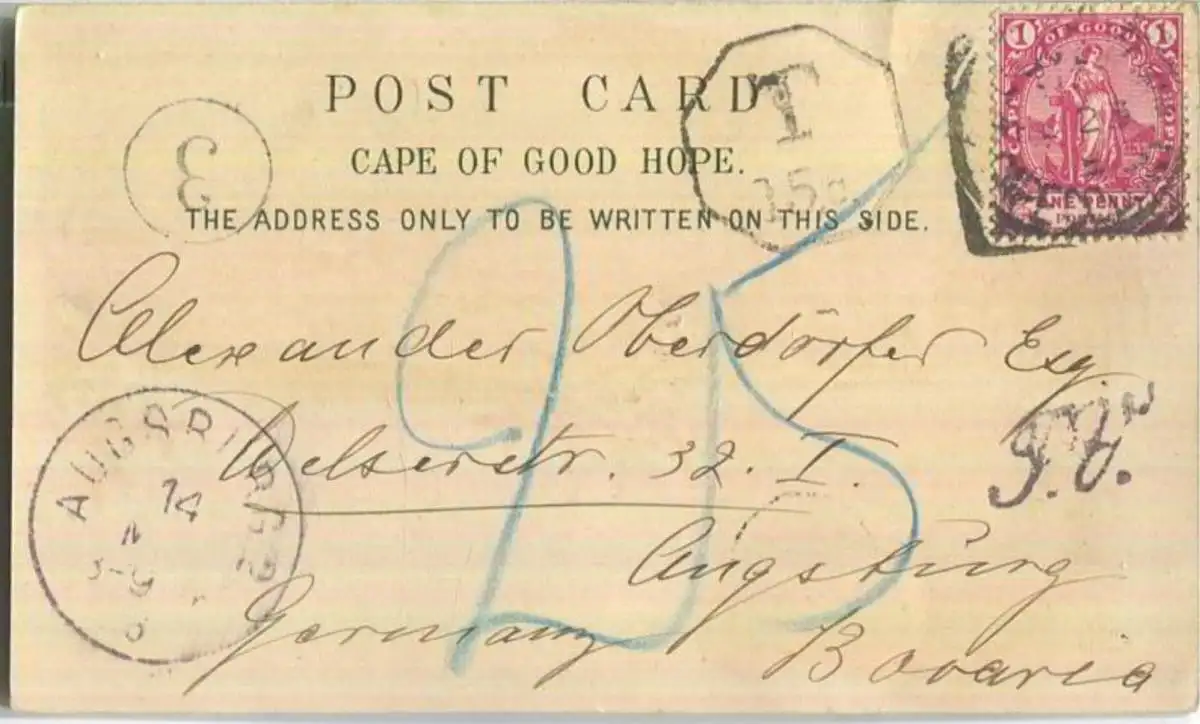 POST CARD
CAPE OF GOOD HOPE.
THE ADDRESS ONLY TO BE WRITTEN ON THIS SIDE.
3
T
15c
1 OF GOOD 1
CAPE HOPE
ONE PENNY
25
Alexander Oberdörfer Esq.
Welserstr. 32. I.
Augsburg
Germany Bavaria
AUGSBURG
14